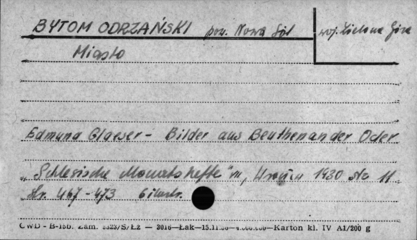 BYTOM ODRZAŃSKI pow. Nowa Sól woj. Zielona Góra
Miasto
Edmund Glaeser - Bilder aus Beuthen an der Oder
"Schlesische Monatshefte", 1930 No 11
Str. 467-473 6 ilustr.
CWD - B-156. Zam. S/Łż — 2016 — Łak — Karton kl. IV A1/200 g